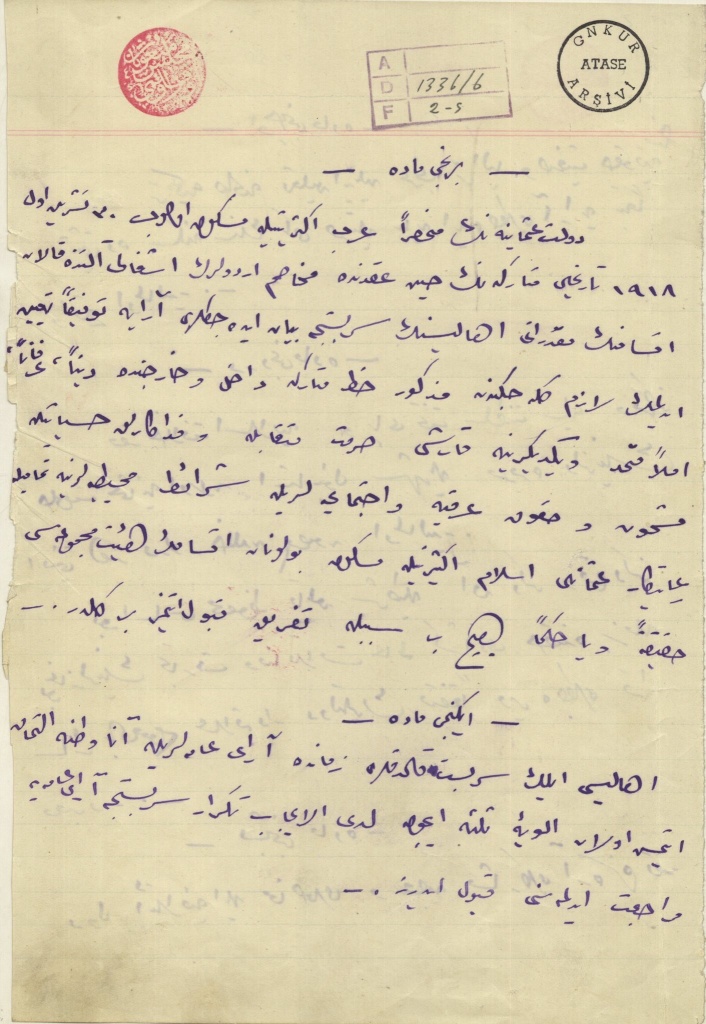 GNKUR
ATASE
ARŞİVİ
A
D 1336/6
F 2-5
— برنجی ماده —
دولت عثمانیه نك منحصراً عرب اكثریتیله مسكون اولوب ٣٠ تشرین اول
١٩١٨ تاریخلی متاركه نك حین عقدنده مخاصم اردولرك اشغالی آلتنده قالان
اقسامنك مقدراتی اهالیسنك سربستجه بیان ایده جكلری آرایه توفیقاً تعیین
ایدلمك لازم كله جكندن مذكور خط متاركه داخل و خارجنده دیناً، عرفاناً،
املاً متحد ویكدیكرینه قارشی حرمت متقابله و فداكارلق حسیاتیله
مشحون و حقوق عرقیه واجتماعیه لریله شرائط محیطیه لرینه تمامیله
رعایتكار عثمانلی اسلام اكثریتیله مسكون بولونان اقسامك هیئت مجموعه سی
حقیقةً ویا حكماً هیچ بر سببله تفریق قبول ایتمز بر كلدر . —
— ایكنجی ماده —
اهالیسی ایلك سربست قالدقلری زمانده آرای عامه لریله آنا وطنه التحاق
ایتمش اولان الویهٔ ثلثه ایچون لدی الایجاب تكرار سربستجه آرای عامه یه
مراجعت ایدلمه سنی قبول ایدرز . —